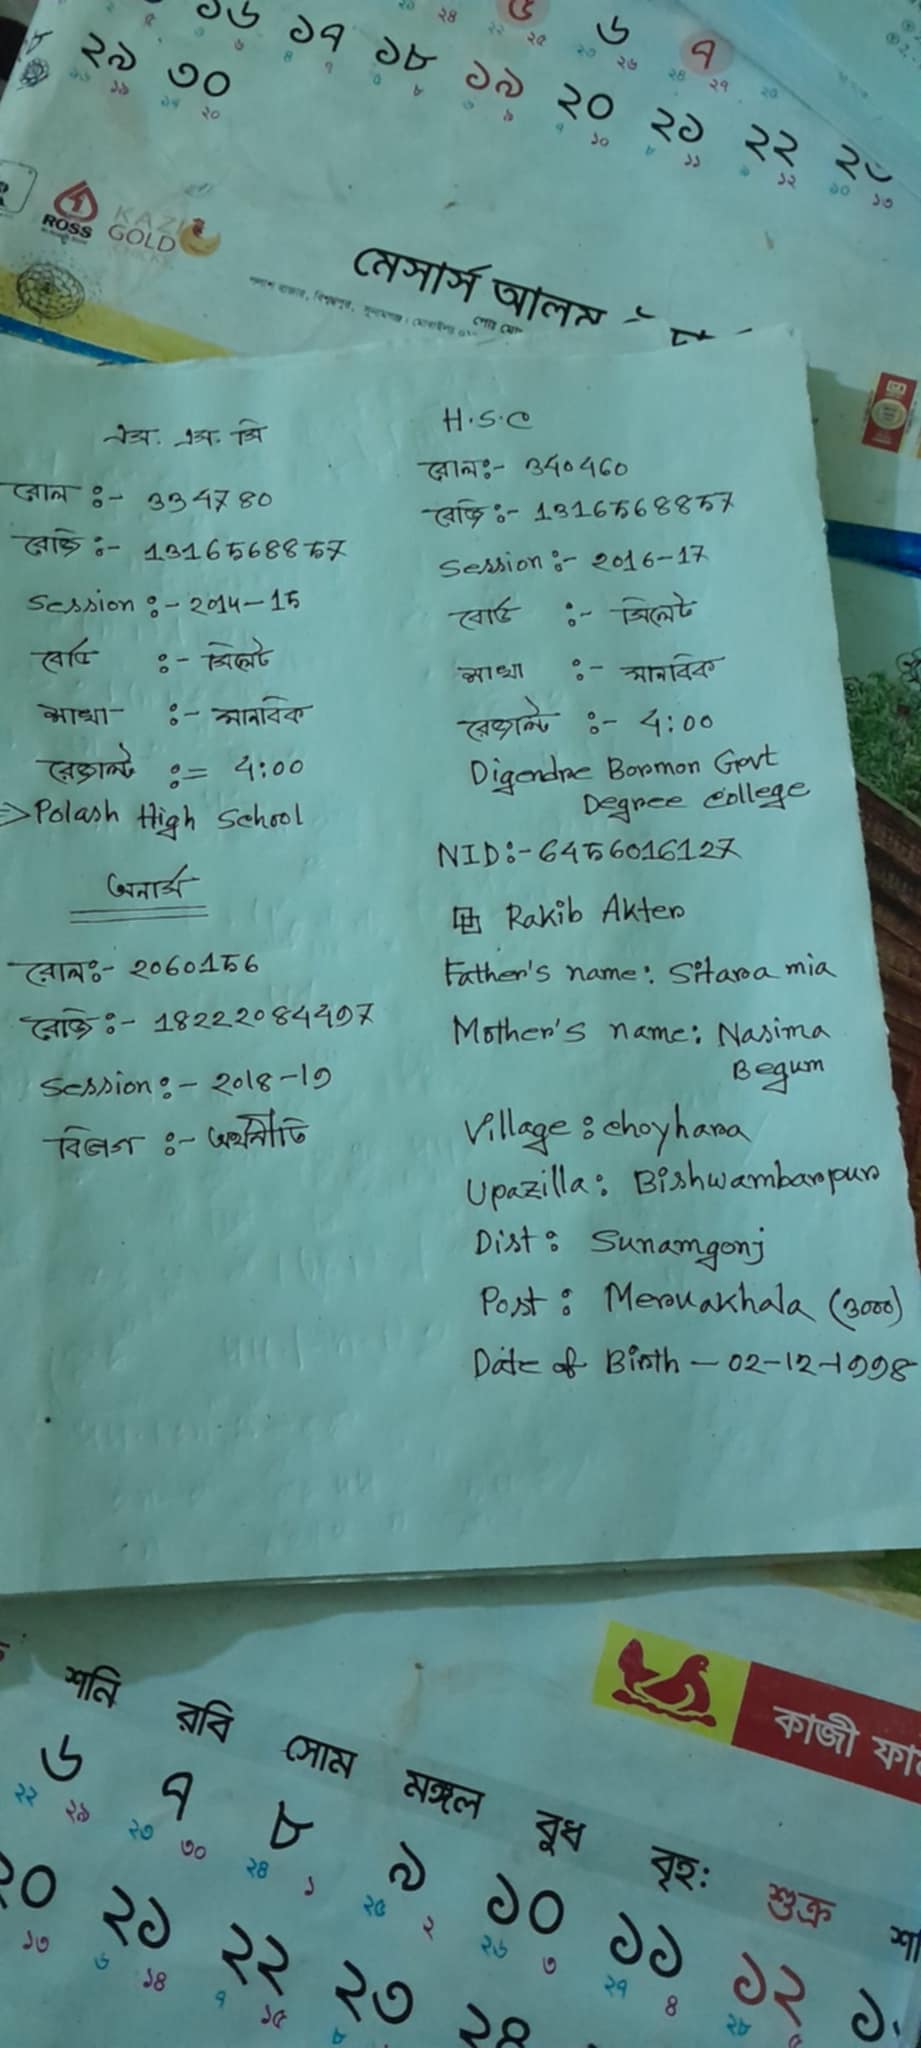 ১৬ ১৭ ১৮ ১৯ ২০ ২১ ২২
২৯ ৩০
৬ ৭
ROSS
KAZI
GOLD
মেসার্স আলম
এস. এস. সি
রোল :- 334780
রেজি :- 1316568857
Session :- 2014-15
বোর্ড :- সিলেট
শাখা :- মানবিক
রেজাল্ট := 4:00
=> Polash High School
অনার্স
রোল:- 2060156
রেজি :- 18222084497
Session :- 2018-19
বিভাগ :- অর্থনীতি
H.S.C
রোল:- 340460
রেজি:- 1316568857
Session :- 2016-17
বোর্ড :- সিলেট
শাখা :- মানবিক
রেজাল্ট :- 4:00
Digendra Bormon Govt
Degree College
NID:- 6456016127
Rakib Akter
Father's name: Sitara mia
Mother's name: Nasima
Begum
Village : Choyhara
Upazilla: Bishwambarpur
Dist : Sunamgonj
Post : Meruakhala (3000)
Date of Birth - 02-12-1998
কাজী
শনি রবি সোম মঙ্গল বুধ বৃহ: শুক্র
৬ ৭ ৮ ৯ ১০ ১১ ১২
২০ ২১ ২২ ২৩ ২৪